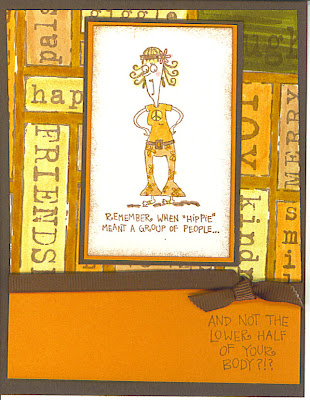 hap
JOY
MERRY
FRIENDS
kind
smi
REMEMBER WHEN "HIPPIE"
MEANT A GROUP OF PEOPLE...
AND NOT THE
LOWER HALF
OF YOUR
BODY?!?